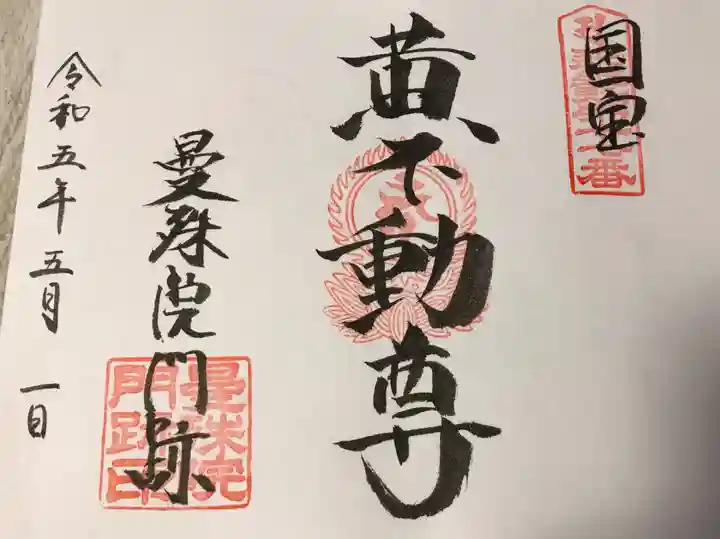 国宝
黄不動尊
曼殊院門跡
曼殊院
門跡印
令和五年五月一日